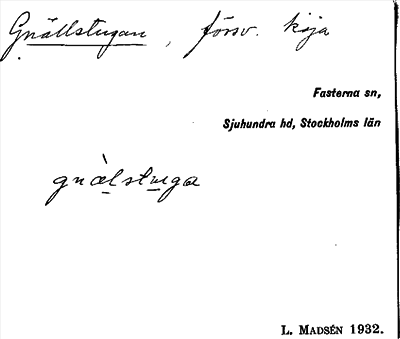 Gnällstugan, försv. koja
Fasterna sn,
Sjuhundra hd, Stockholms län
gnæ̀lstuga
L. MADSÉN 1932.